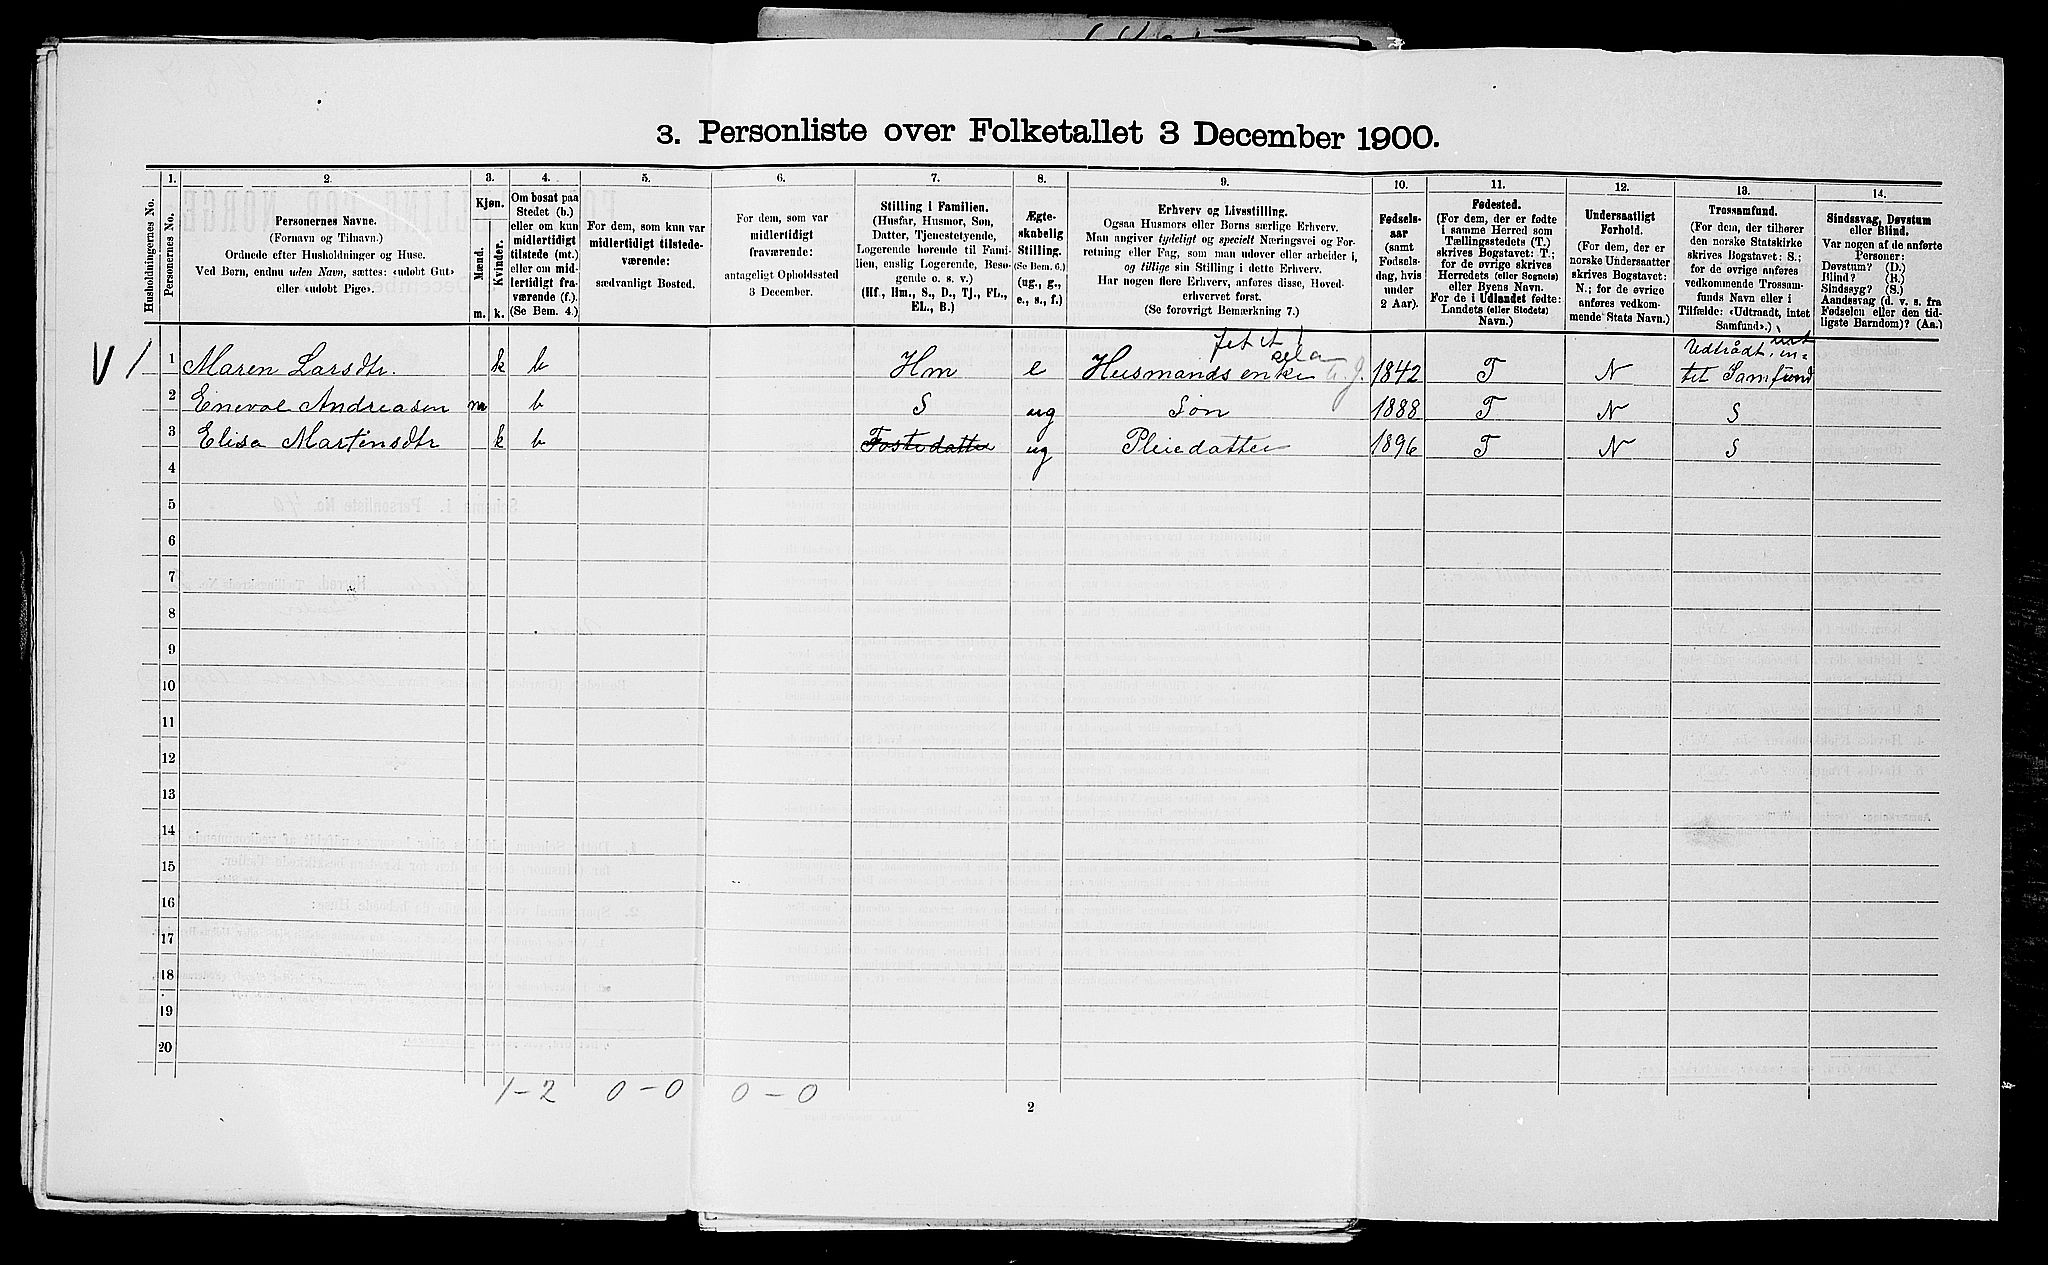 3. Personliste over Folketallet 3 December 1900.
1. 2. 3. 4. 5. 6. 7. 8. 9. 10. 11. 12. 13. 14.
Husholdningernes No.
Personernes No.
Personernes Navne.
(Fornavn og Tilnavn.)
Ordnede efter Husholdninger og Huse.
Ved Børn, endnu uden Navn, sættes: «udøbt Gut»
eller «udøbt Pige».
Kjøn.
Mænd.
Kvinder.
m. k.
Om bosat paa
Stedet (b.)
eller om kun
midlertidigt
tilstede (mt.)
eller om mid-
lertidigt fra-
værende (f.).
(Se Bem. 4.)
For dem, som kun var
midlertidigt tilstede-
værende:
sædvanligt Bosted.
For dem, som var
midlertidigt
fraværende:
antageligt Opholdssted
3 December.
Stilling i Familien.
(Husfar, Husmor, Søn,
Datter, Tjenestetyende,
Logerende hørende til Fami-
lien, enslig Logerende, Besø-
gende o. s. v.)
(Hf., Hm., S., D., Tj., FL.,
EL., B.)
Ægte-
skabelig
Stilling.
(Se Bem. 6.)
(ug., g.,
e., s., f.)
Erhverv og Livsstilling.
Ogsaa Husmors eller Børns særlige Erhverv.
Man angiver tydeligt og specielt Næringsvei og For-
retning eller Fag, som man udøver eller arbeider i,
og tillige sin Stilling i dette Erhverv.
Har nogen flere Erhverv, anføres disse, Hoved-
erhvervet først.
(Se forøvrigt Bemærkning 7.)
Fødsels-
aar
(samt
Fødsels-
dag, hvis
under
2 Aar).
Fødested.
(For dem, der er fødte
i samme Herred som
Tællingsstedets (T.)
skrives Bogstavet: T.;
for de øvrige skrives
Herredets (eller Sognets)
eller Byens Navn.
For de i Udlandet fødte:
Landets (eller Stedets)
Navn.)
Undersaatligt
Forhold.
(For dem, der er
norske Undersaatter
skrives Bogstavet:
N.; for de øvrige
anføres vedkom-
mende Stats Navn.)
Trossamfund.
(For dem, der tilhører
den norske Statskirke
skrives Bogstavet: S.;
for de øvrige anføres
vedkommende Trossam-
funds Navn eller i
Tilfælde: «Udtraadt, intet
Samfund».)
Sindssvag, Døvstum
eller Blind.
Var nogen af de anførte
Personer:
Døvstum? (D.)
Blind? (B.)
Sindssyg? (S.)
Aandssvag (d. v. s. fra
Fødselen eller den tid-
ligste Barndom)? (Aa.)
1 Maren Larsdtr. k b Hm e Husmandsenke 1842 T N Udtrådt, in-
tet Samfund
2 Eneval Andreasen m b S ug Søn 1888 T N S
3 Elisa Martinsdtr k b Fosterdatter ug Pleiedatter 1896 T N S
4
5
6
7
8
9
10
11
12
13
14
15
16
17
18
19
20
1-2 0-0 0-0
2